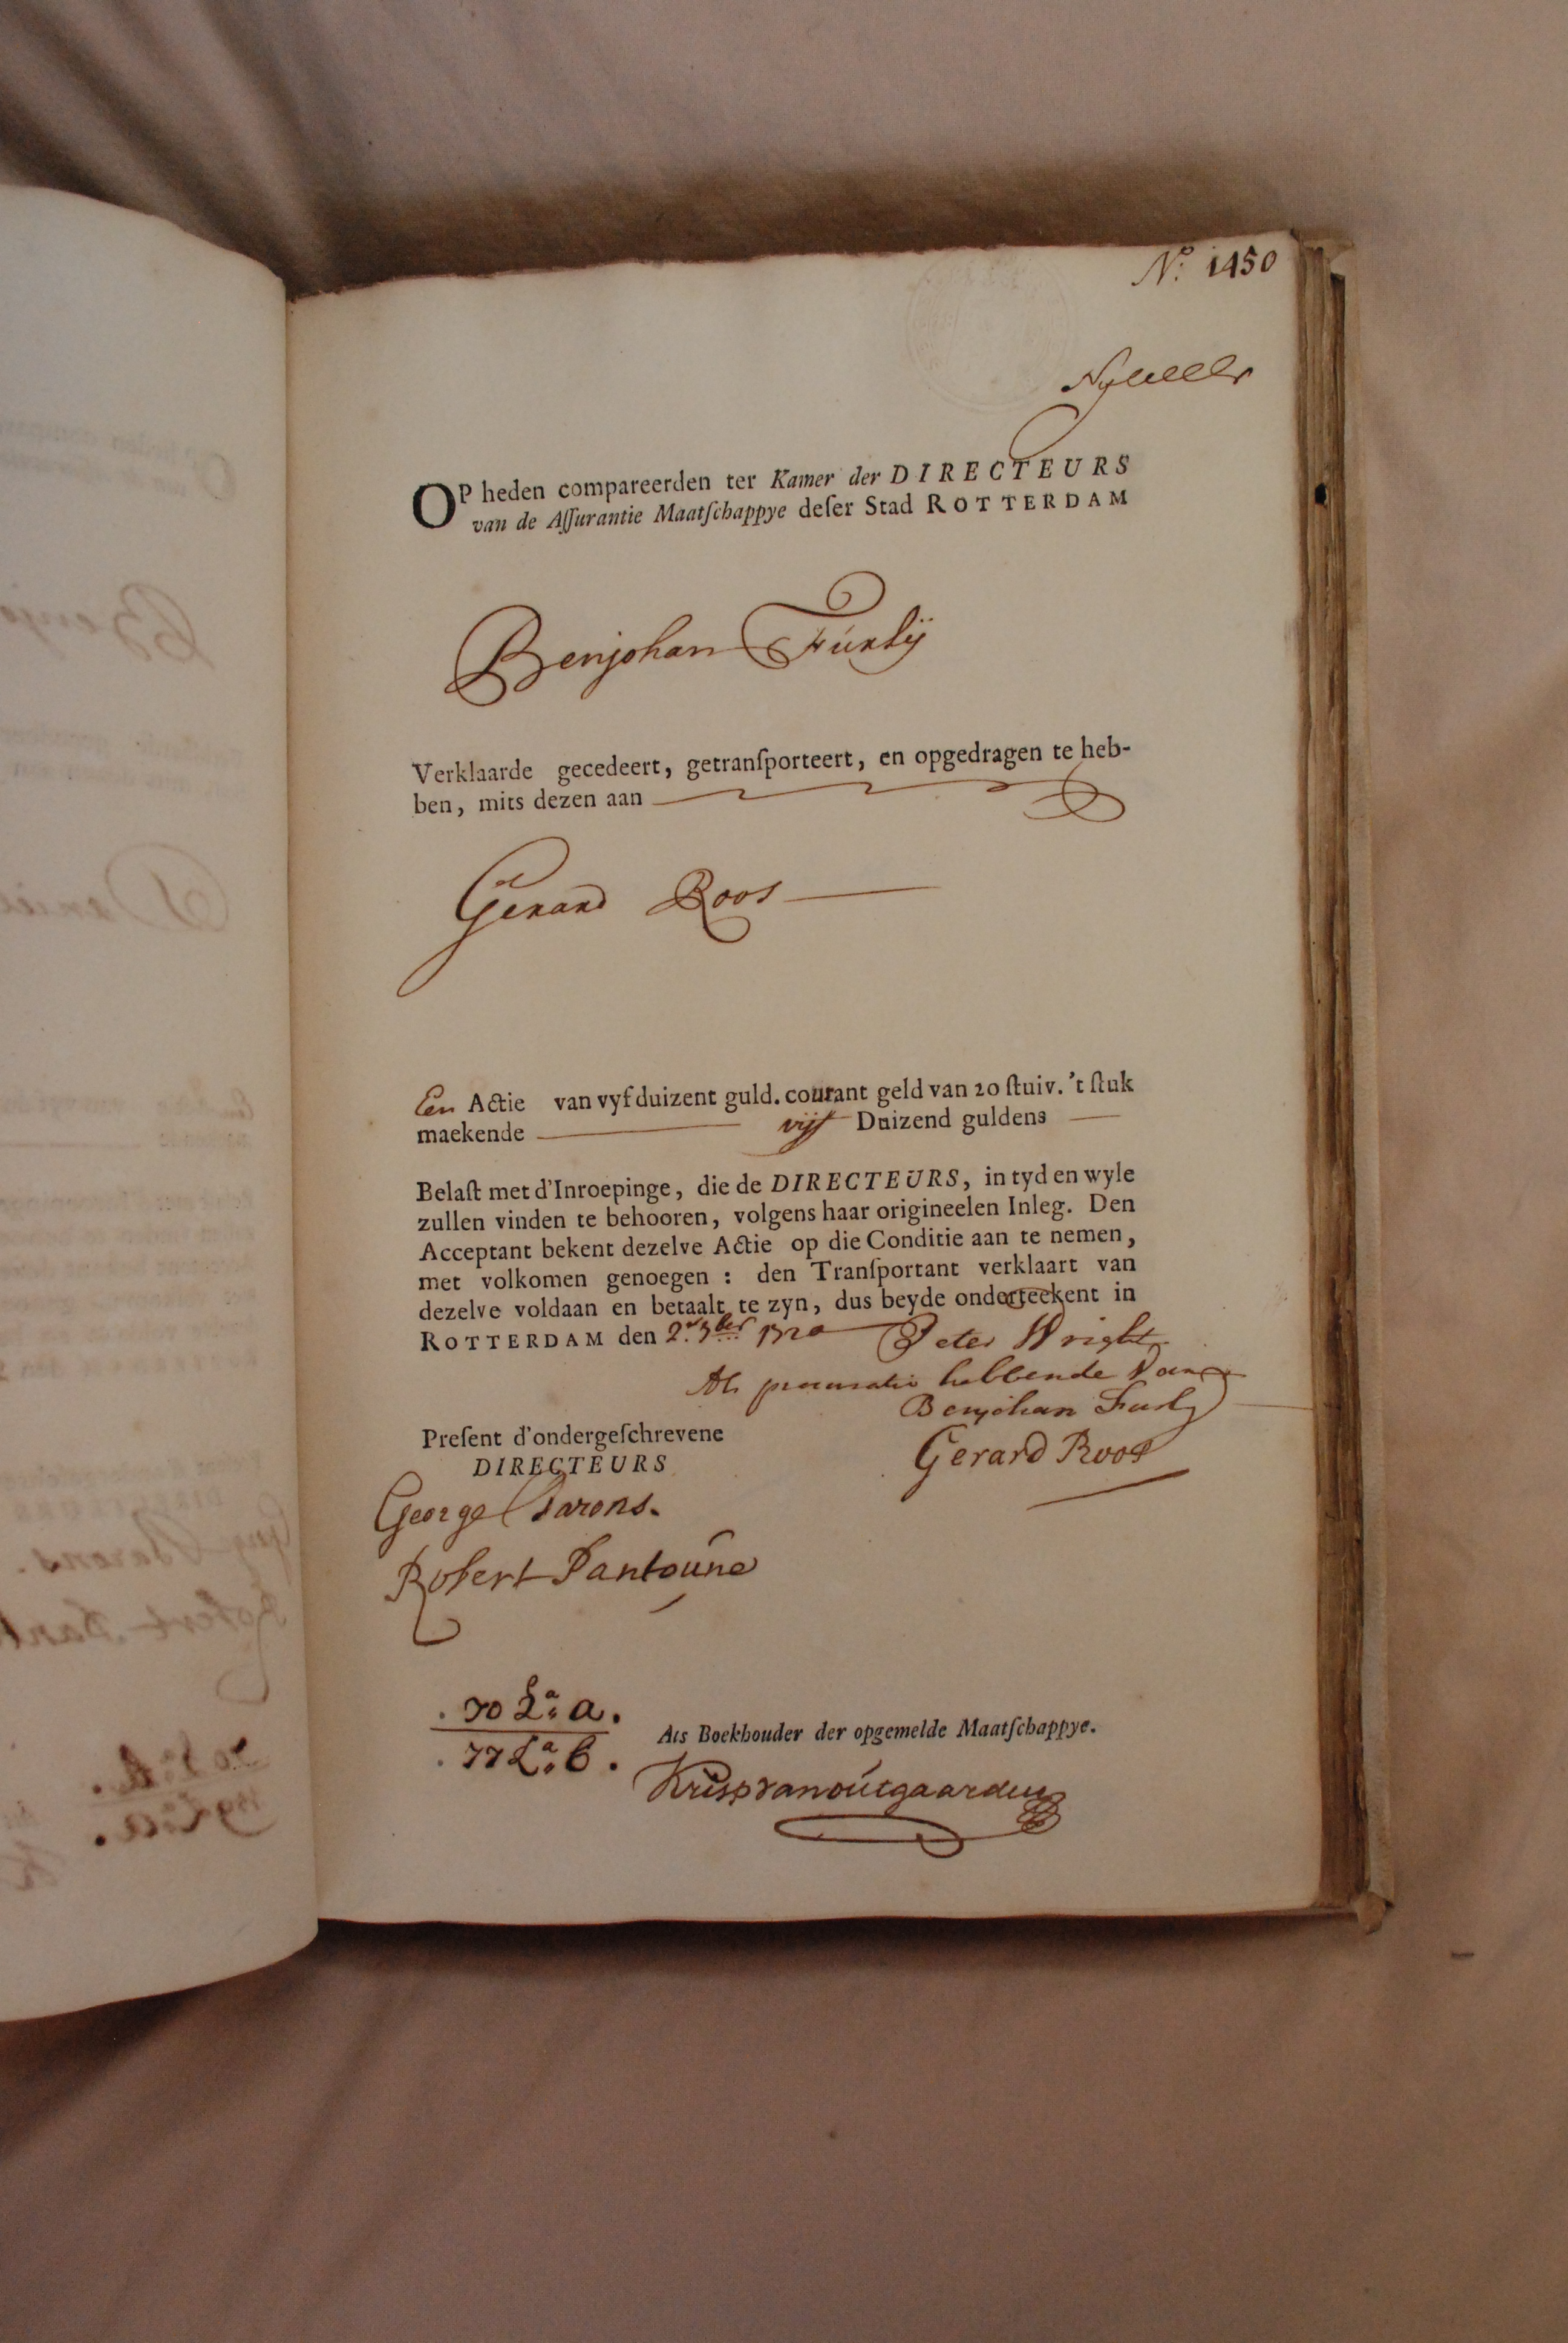 No. 1450
OP heden compareerden ter Kamer der DIRECTEURS
van de Aſſurantie Maatſchappye deſer Stad ROTTERDAM
Benjohan Fúrlÿ
Verklaarde gecedeert, getranſporteert, en opgedragen te heb-
ben, mits dezen aan
Gerard Roos
Een Actie van vyf duizent guld. courant geld van 20 ſtuiv. 't ſtuk
maekende vijf Duizend guldens
Belaſt met d'Inroepinge, die de DIRECTEURS, in tyd en wyle
zullen vinden te behooren, volgens haar origineelen Inleg. Den
Acceptant bekent dezelve Actie op die Conditie aan te nemen,
met volkomen genoegen : den Tranſportant verklaart van
dezelve voldaan en betaalt te zyn, dus beyde onderteekent in
ROTTERDAM den 1720 Peter Wright
Als procuratie hebbende van
Benjohan Furly
Preſent d'ondergeſchrevene
DIRECTEURS
Gerard Roos
George Barons.
Robert Pantoúne
70 La: a.
77 La: b.
Als Boekhouder der opgemelde Maatſchappye.